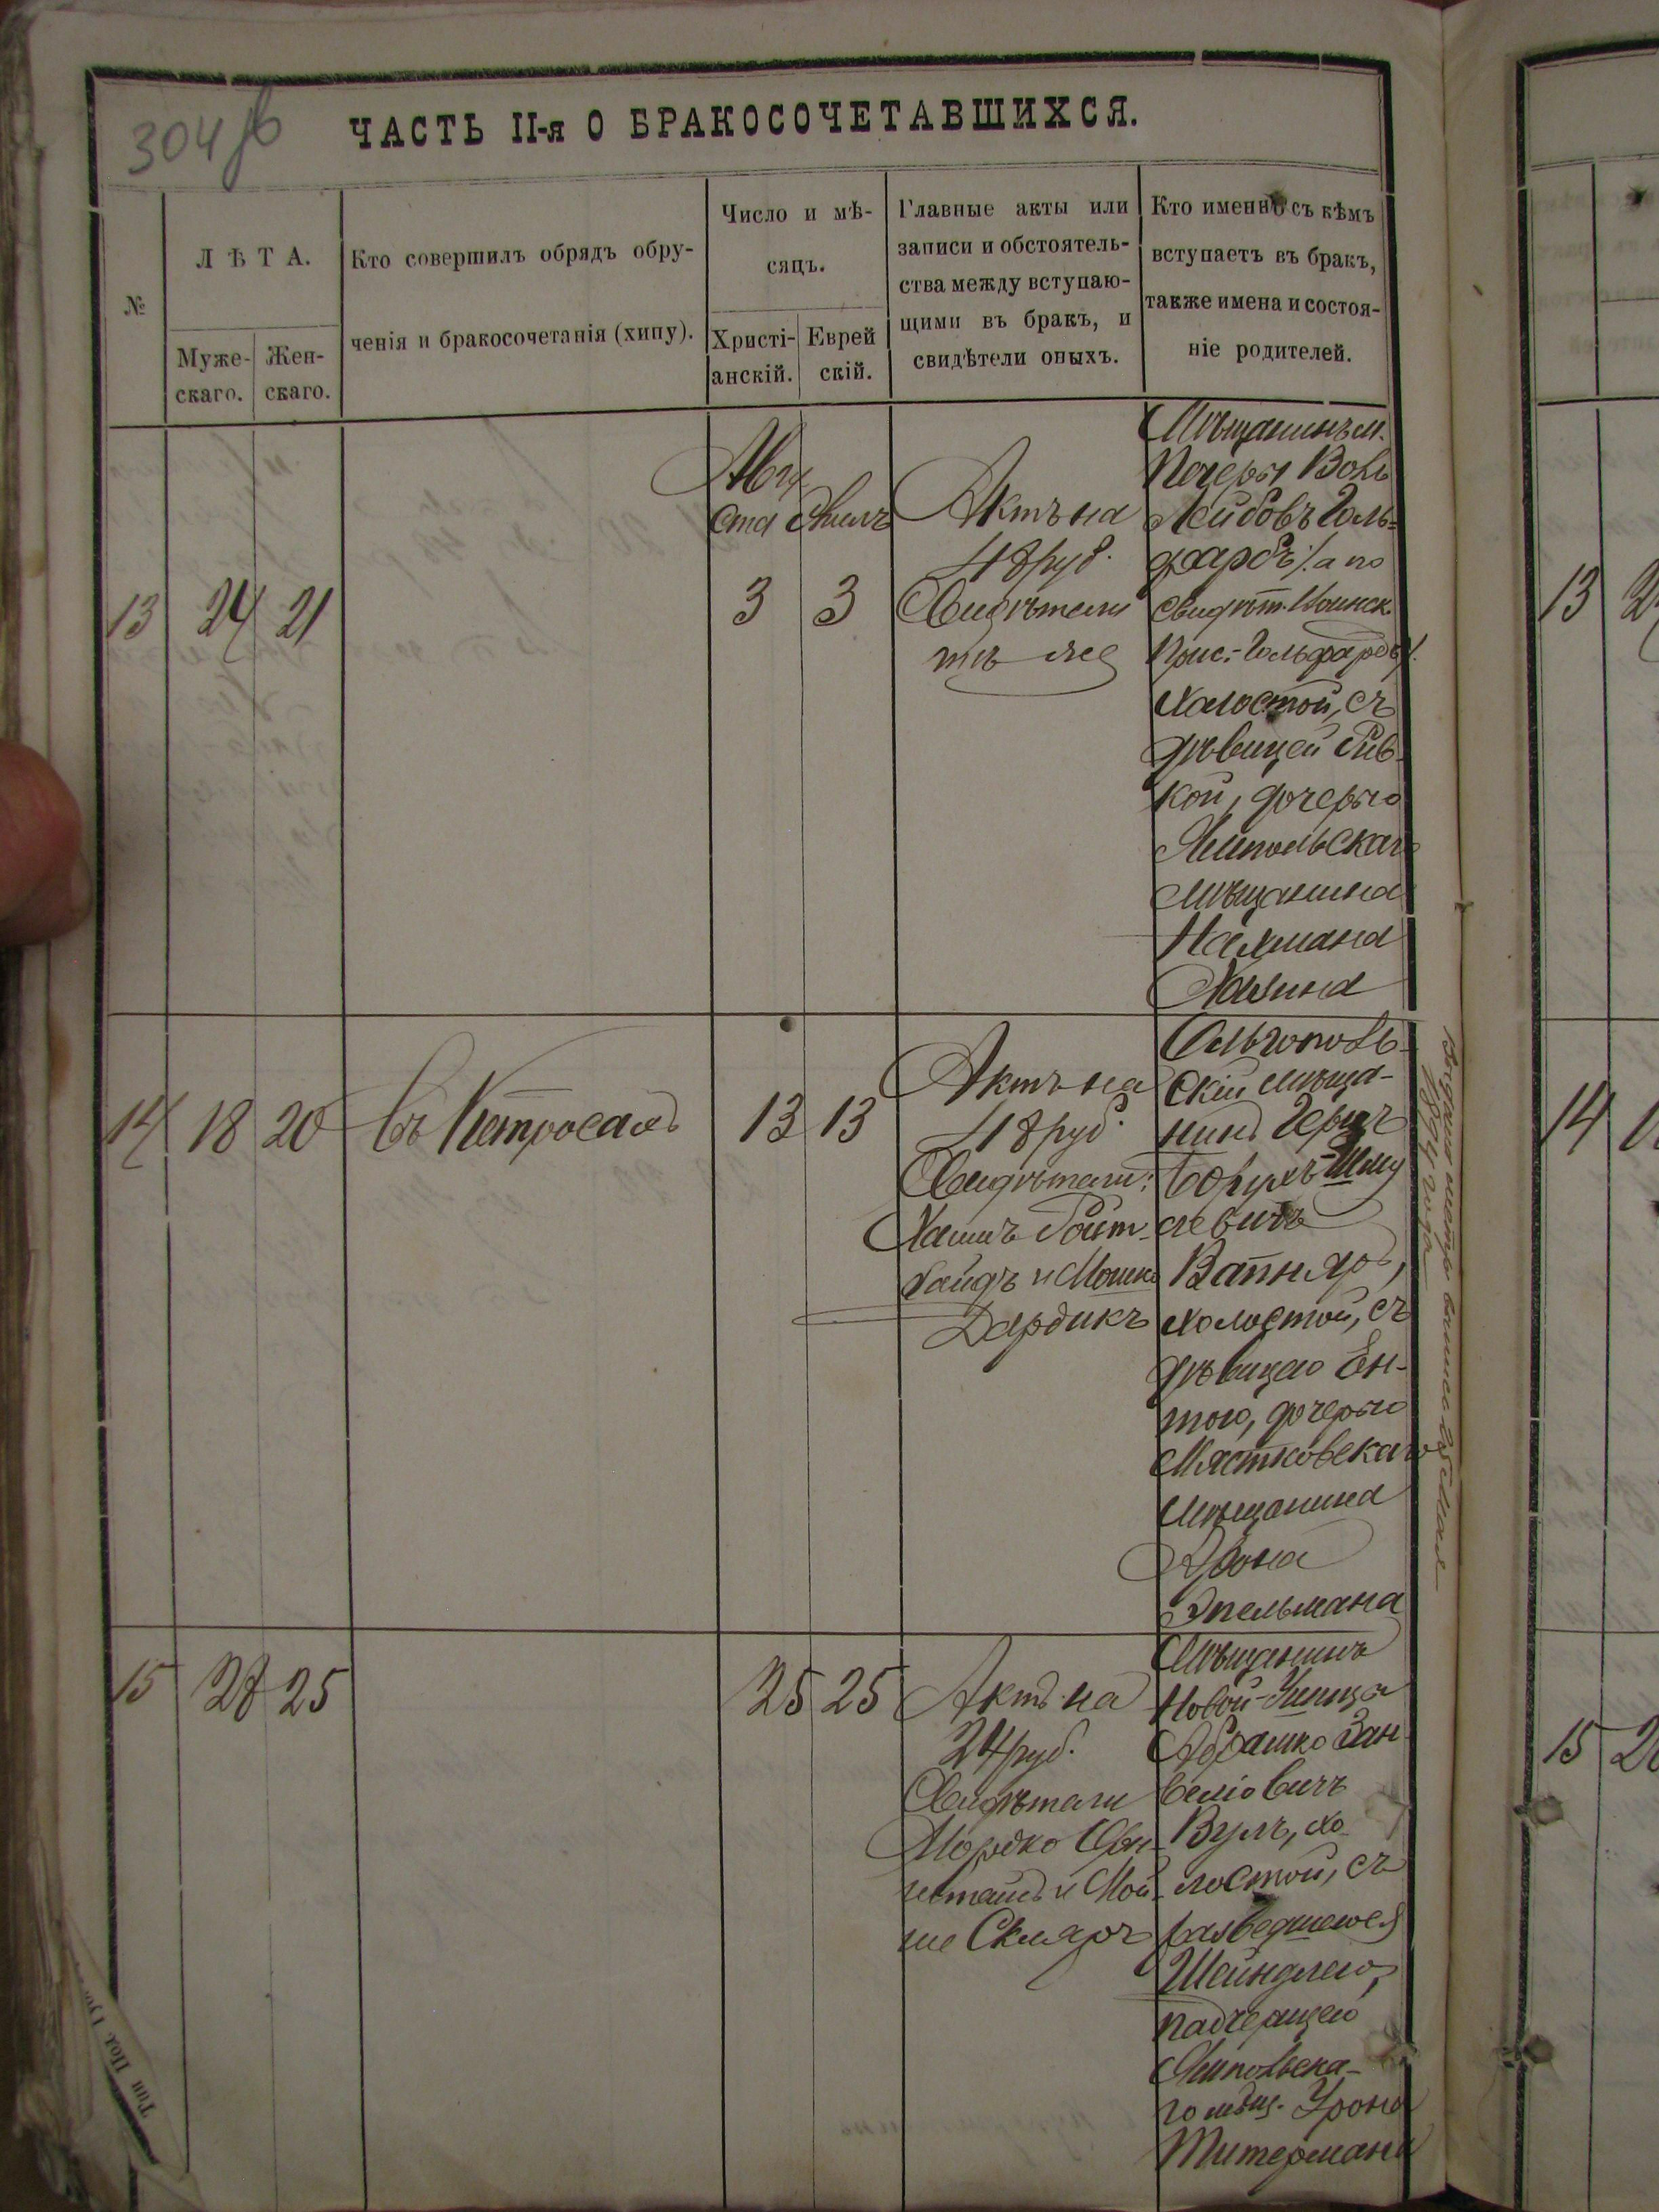 304 об
ЧАСТЬ II-я О БРАКОСОЧЕТАВШИХСЯ.
№
ЛѢТА.
Муже-
скаго.
Жен-
скаго.
Кто совершилъ обрядъ обру-
ченія и бракосочетанія (хипу).
Число и мѣ-
сяцъ.
Христі-
анскій.
Еврей
скій.
Главные акты или
записи и обстоятель-
ства между вступаю-
щими въ бракъ, и
свидѣтели оныхъ.
Кто именно съ кѣмъ
вступаетъ въ бракъ,
также имена и состоя-
ніе родителей.
13
24
21
Авгу
ста
3
Элилъ
3
Актъ на
48 руб.
Свидѣтели
тѣ же
Мѣщанинъ м.
Печеры Воль
Лейбовъ Голь=
фарбъ /. а по
свидѣт. Воинск.
Прис.- Гольфарбъ /.
холостой, съ
дѣвицей Рив-
кой, дочерью
Ямпольскаго
мѣщанина
Нахмана
Хазина
14
18
20
въ Петросахъ
13
13
Актъ на
48 руб.
Свидѣтели:
Хаимъ Ройт-
байдъ и Мошко
Дардикъ
Ольгополь-
скій мѣща-
нинъ Герш
Борухъ Шму
левичъ
Вапняръ,
холостой, съ
дѣвицею Ен-
тою, дочерью
Мястковскаго
мѣщанина
Арона
Эпельмана
15
28
25
25
25
Актъ на
24 руб.
Свидѣтели
Мордко
и Мой-
ше Скляръ
Мѣщанинъ
Новой-Ушицы
Абрамко Зан-
веліовичъ
Вулъ, хо
лостой, съ
разведшеюся
Шейндлею,
падчерицею
Ямпольска-
го мѣщ. Урона
Титермана
13
14
15
1894 года
Тип Под. Гу